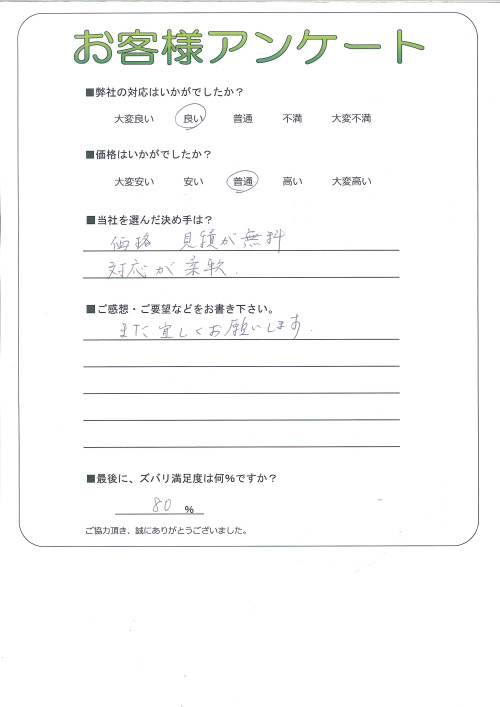 お客様アンケート
■弊社の対応はいかがでしたか？
大変良い 良い 普通 不満 大変不満
■価格はいかがでしたか？
大変安い 安い 普通 高い 大変高い
■当社を選んだ決め手は？
価格 見積が無料
対応が柔軟.
■ご感想・ご要望などをお書き下さい。
また宜しくお願いします.
■最後に、ズバリ満足度は何%ですか？
80 %
ご協力頂き、誠にありがとうございました。